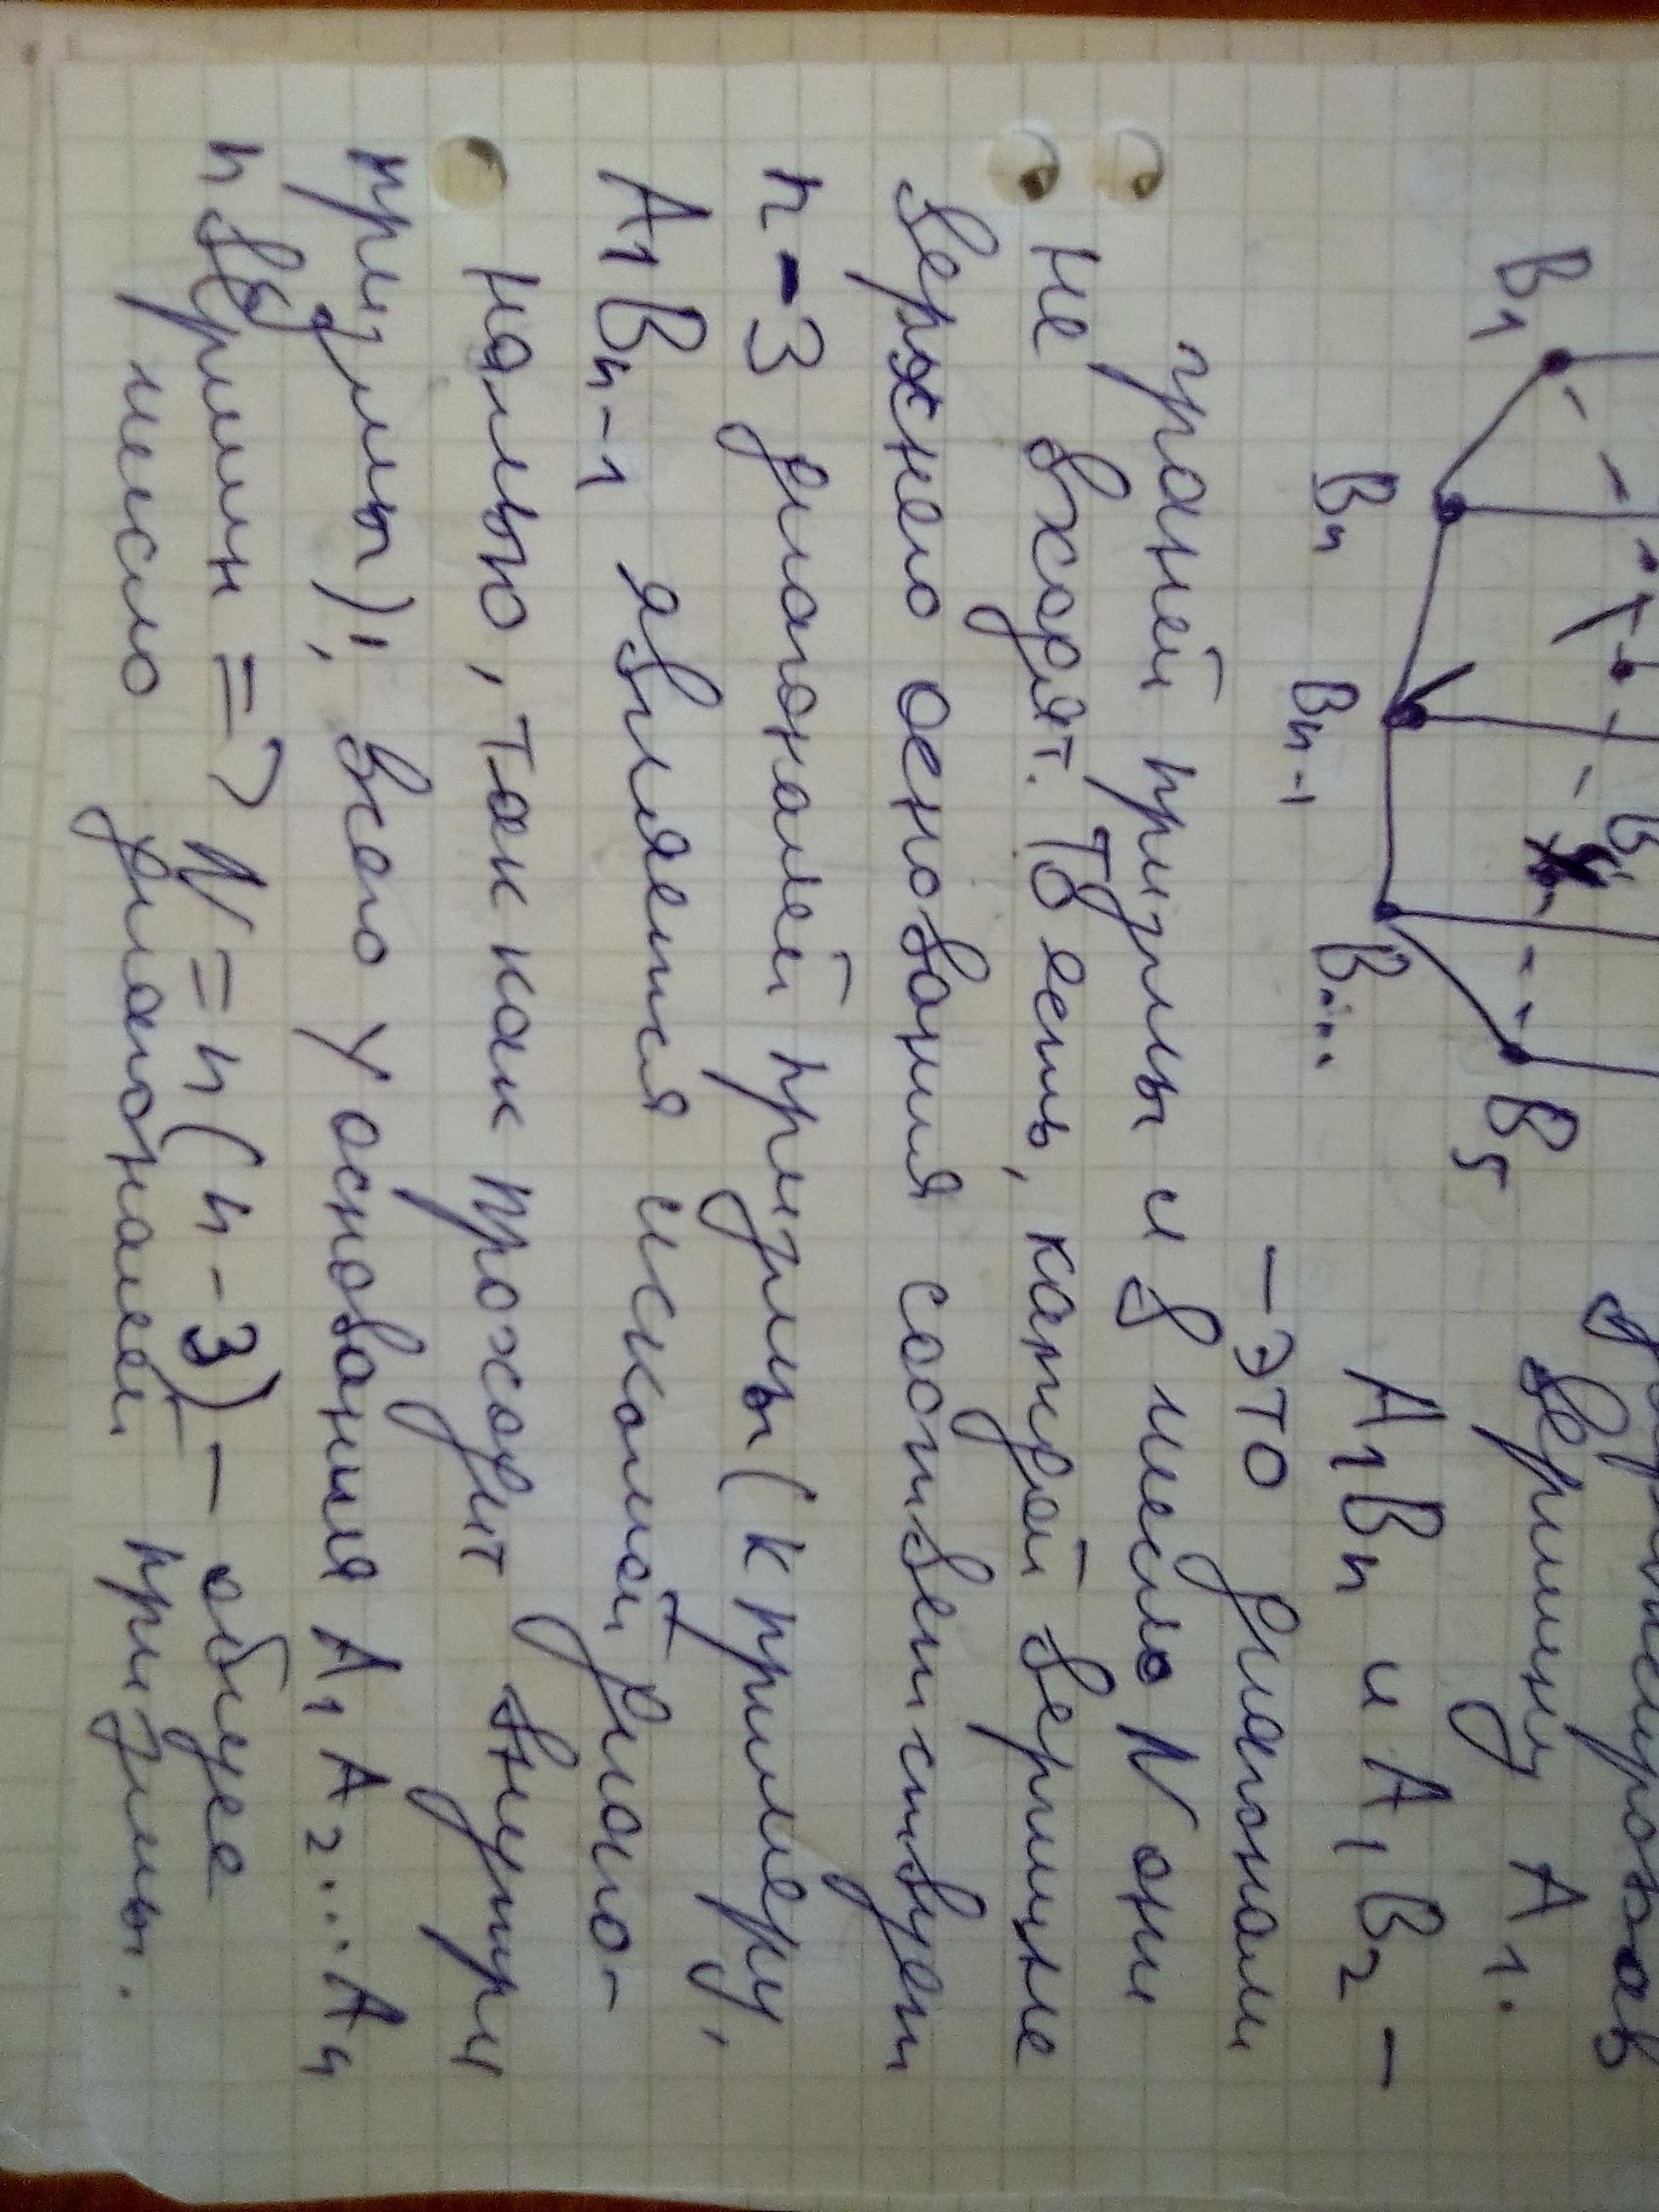 вершину A1.
A1Bn и A1B2 –
– это диагонали
граней призмы и в число N они
не входят. То есть, каждой вершине
верхнего основания соответствует
n-3 диагоналей призмы (к примеру,
A1Bn-1 является искомой диаго-
налью, так как проходит внутри
призмы); всего у основания A1A2...An
n вершин => N = n(n-3) – общее
число диагоналей призмы.
B1
Bn
Bn-1
B...
B5